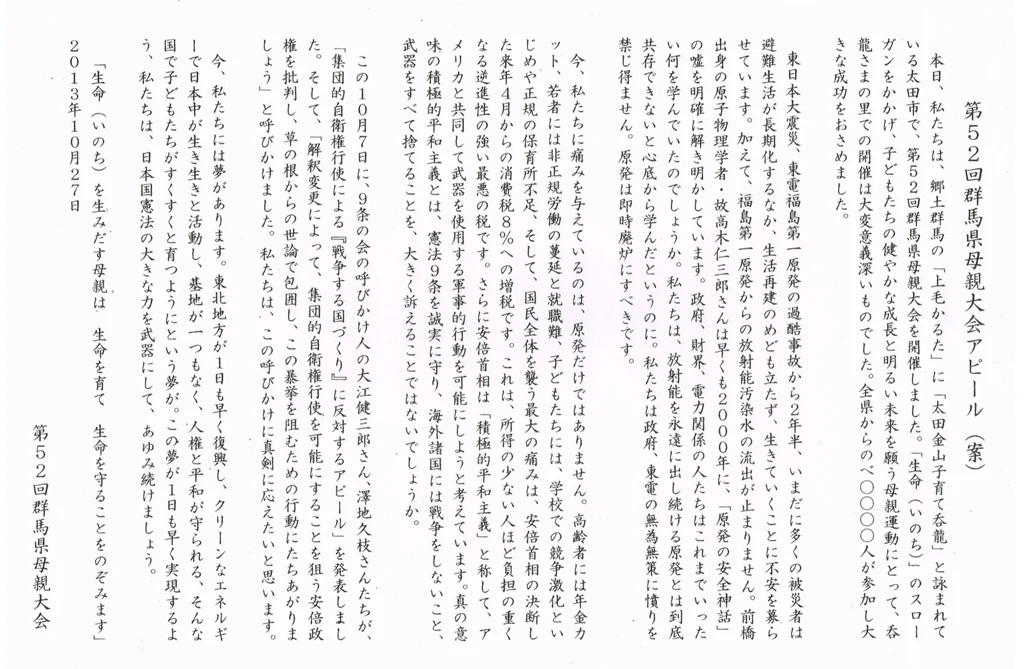 第５２回群馬県母親大会アピール（案）
本日、私たちは、郷土群馬の「上毛かるた」に「太田金山子育て呑龍」と詠まれて
いる太田市で、第５２回群馬県母親大会を開催しました。「生命（いのち）」のスロー
ガンをかかげ、子どもたちの健やかな成長と明るい未来を願う母親運動にとって、呑
龍さまの里での開催は大変意義深いものでした。全県からのべ〇〇〇〇人が参加し大
きな成功をおさめました。
東日本大震災、東電福島第一原発の過酷事故から２年半、いまだに多くの被災者は
避難生活が長期化するなか、生活再建のめども立たず、生きていくことに不安を募ら
せています。加えて、福島第一原発からの放射能汚染水の流出が止まりません。前橋
出身の原子物理学者・故高木仁三郎さんは早くも２０００年に、「原発の安全神話」
の嘘を明確に解き明かしています。政府、財界、電力関係の人たちはこれまでいった
い何を学んでいたのでしょうか。私たちは、放射能を永遠に出し続ける原発とは到底
共存できないと心底から学んだというのに。私たちは政府、東電の無為無策に憤りを
禁じ得ません。原発は即時廃炉にすべきです。
今、私たちに痛みを与えているのは、原発だけではありません。高齢者には年金カ
ット、若者には非正規労働の蔓延と就職難、子どもたちには、学校での競争激化とい
じめや正規の保育所不足、そして、国民全体を襲う最大の痛みは、安倍首相の決断し
た来年４月からの消費税８％への増税です。これは、所得の少ない人ほど負担の重く
なる逆進性の強い最悪の税です。さらに安倍首相は「積極的平和主義」と称して、ア
メリカと共同して武器を使用する軍事的行動を可能にしようと考えています。真の意
味の積極的平和主義とは、憲法９条を誠実に守り、海外諸国には戦争をしないこと、
武器をすべて捨てることを、大きく訴えることではないでしょうか。
この１０月７日に、９条の会の呼びかけ人の大江健三郎さん、澤地久枝さんたちが、
「集団的自衛権行使による『戦争する国づくり』に反対するアピール」を発表しまし
た。そして、「解釈変更によって、集団的自衛権行使を可能にすることを狙う安倍政
権を批判し、草の根からの世論で包囲し、この暴挙を阻むための行動にたちあがりま
しょう」と呼びかけました。私たちは、この呼びかけに真剣に応えたいと思います。
今、私たちには夢があります。東北地方が１日も早く復興し、クリーンなエネルギ
ーで日本中が生き生きと活動し、基地が一つもなく、人権と平和が守られる、そんな
国で子どもたちがすくすくと育つようにという夢が。この夢が１日も早く実現するよ
う、私たちは、日本国憲法の大きな力を武器にして、あゆみ続けましょう。
「生命（いのち）を生みだす母親は　生命を育て　生命を守ることをのぞみます」
２０１３年１０月２７日
第５２回群馬県母親大会